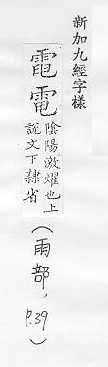 新加九經字樣
電
陰陽激燿也上
說文下隸省
（雨部，P.39）